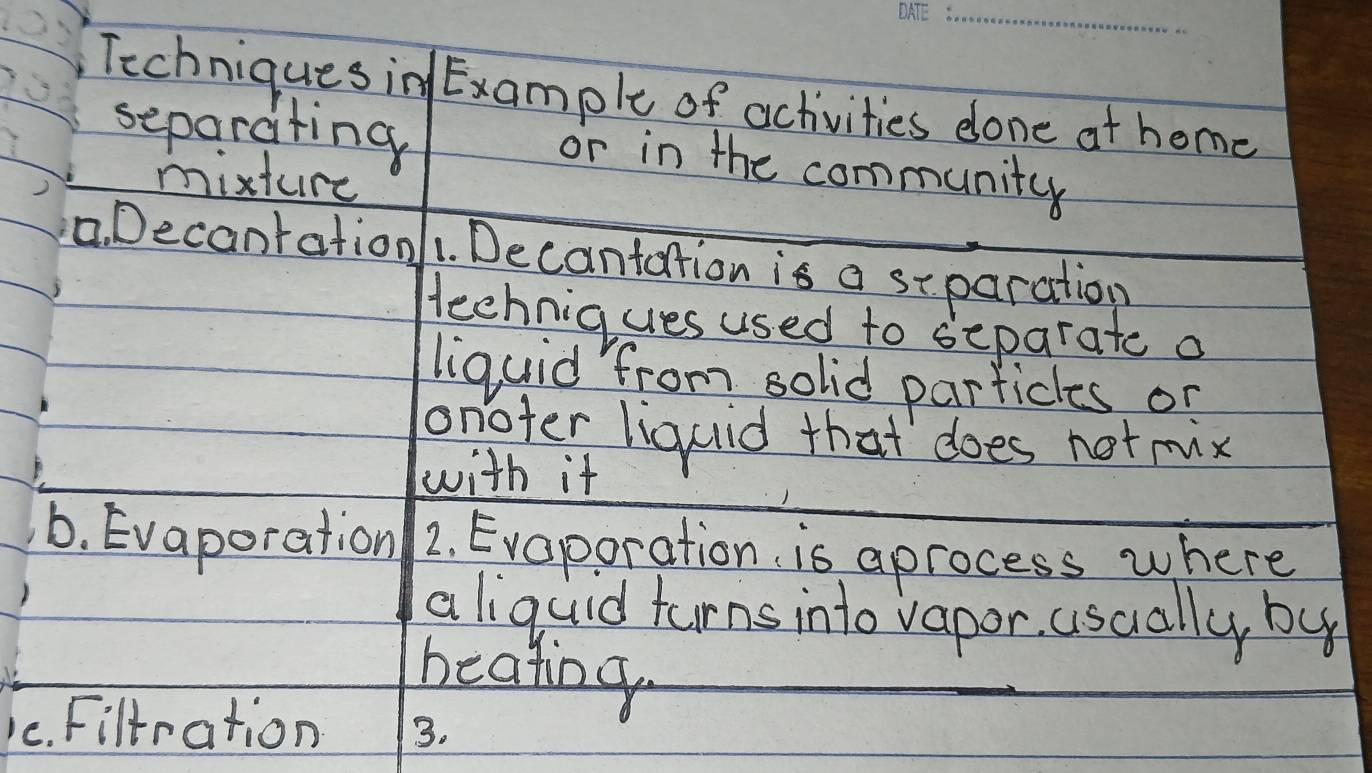 DATE
Techniques in
separating
mixture
Example of activities done at home
or in the community
a. Decantation
1. Decantation is a separation
techniques used to separate a
liquid from solid particles or
onoter liquid that does not mix
with it
b. Evaporation
2. Evaporation. is aprocess where
a liquid turns into vapor. usually by
heating.
c. Filtration
3.